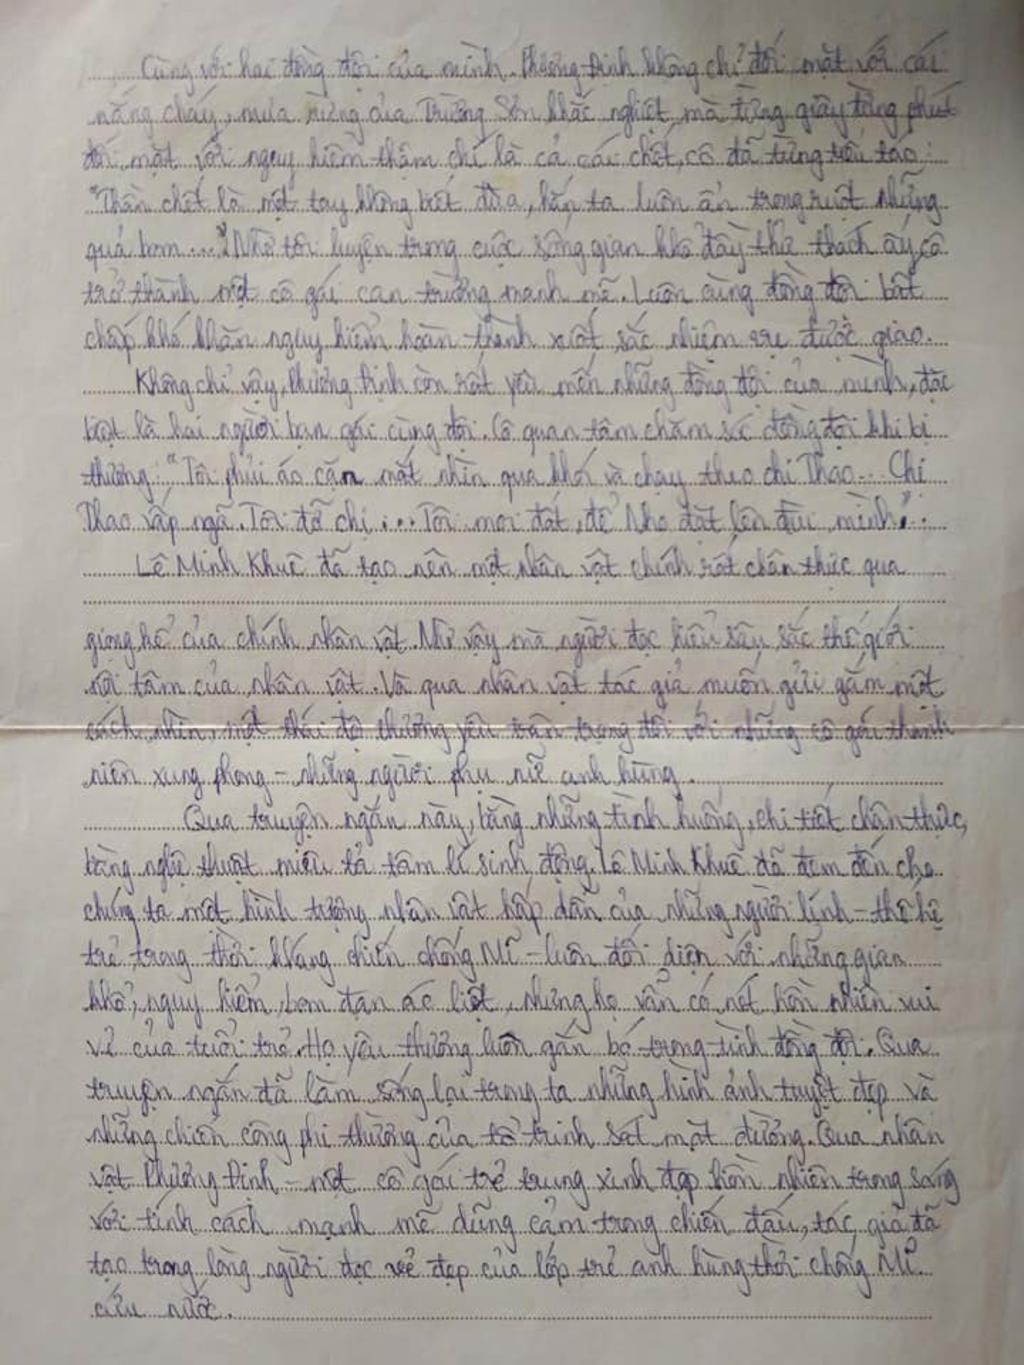 Cùng với hai đồng đội của mình. Phương Định không chỉ đối mặt với cái
nắng cháy, mưa rừng của Trường Sơn khắc nghiệt mà từng giây từng phút
đối mặt với nguy hiểm thậm chí là cả cái chết, cô đã từng tếu táo:
"Thần chết là một tay không biết đùa, hắn ta luôn ẩn trong ruột những
quả bom ..." Nhờ tôi luyện trong cuộc sống gian khổ đầy thử thách ấy, cô
trở thành một cô gái can trường mạnh mẽ. Luôn cùng đồng đội bất
chấp khó khăn nguy hiểm hoàn thành xuất sắc nhiệm vụ được giao.
Không chỉ vậy, Phương Định còn rất yêu mến những đồng đội của mình, đặc
biệt là hai người bạn gái cùng đội. Cô quan tâm chăm sóc đồng đội khi bị
thương: "Tôi phủi áo căn mắt nhìn qua khói và chạy theo chị Thao... Chị
Thao vấp ngã. Tôi đỡ chị ... Tôi moi đất, để Nho đặt lên đùi mình".
Lê Minh Khuê đã tạo nên một nhân vật chính rất chân thực qua
giọng kể của chính nhân vật. Nhờ vậy mà người đọc hiểu sâu sắc thế giới
nội tâm của nhân vật. Và qua nhân vật tác giả muốn gửi gắm một
cách nhìn, một thái độ thương yêu trân trọng đối với những cô gái thanh
niên xung phong - những người phụ nữ anh hùng.
Qua truyện ngắn này, bằng những tình huống, chi tiết chân thực,
bằng nghệ thuật miêu tả tâm lí sinh động. Lê Minh Khuê đã đem đến cho
chúng ta một hình tượng nhân vật hấp dẫn của những người lính - thế hệ
trẻ trong thời kháng chiến chống Mĩ - luôn đối diện với những gian
khổ, nguy hiểm, bom đạn ác liệt, nhưng họ vẫn có nét hồn nhiên vui
vẻ của tuổi trẻ. Họ yêu thương luôn gắn bó trong tình đồng đội. Qua
truyện ngắn đã làm sống lại trong ta những hình ảnh tuyệt đẹp và
những chiến công phi thường của tổ trinh sát mặt đường. Qua nhân
vật Phương Định - một cô gái trẻ trung xinh đẹp hồn nhiên trong sáng
với tính cách mạnh mẽ dũng cảm trong chiến đấu, tác giả đã
tạo trong lòng người đọc vẻ đẹp của lớp trẻ anh hùng thời chống Mĩ
cứu nước.